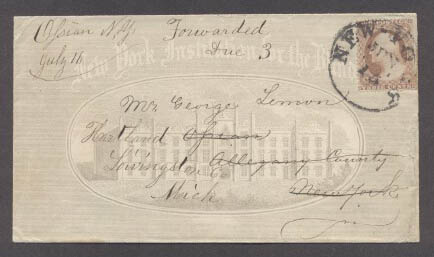 Ossian N.Y. Forwarded
July 16 Due 3
New York Institution for the Blind
NEW YORK
Mr George Lemon
Hartland Ossian
Livingston Co Allegany County
Mich New York